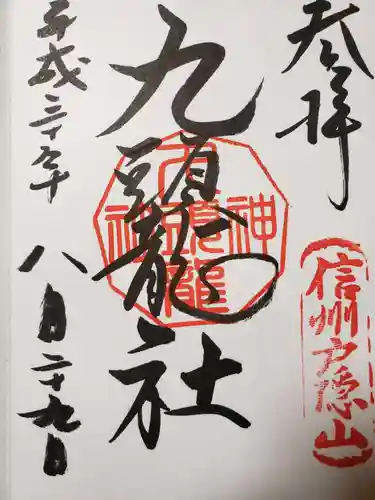 参拝
信州戸隠山
九頭龍社
九頭龍神社
平成年
八月二十九日